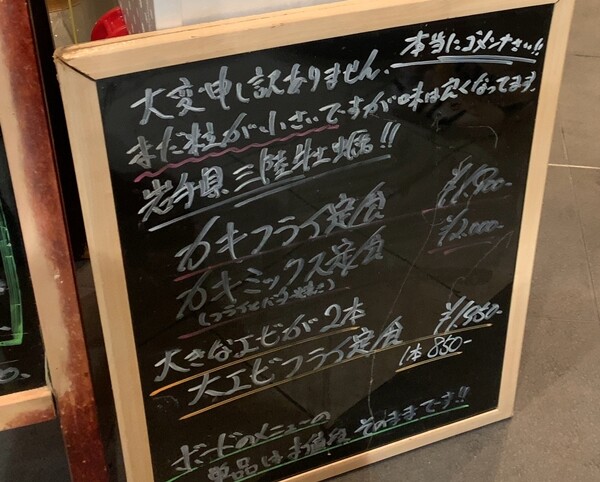 大変申し訳ありません、本当にゴメンナさい!!
まだ粒が小さいですが味は良くなってます。
岩手県三陸牡蠣!!
カキフライ定食 ¥1,900-
カキミックス定食 ¥2,000-
(フライとバター焼き)
大きなエビが2本
大エビフライ定食 ¥1,950-
1本850-
ボードのメニューの
単品はお値段そのままです!!